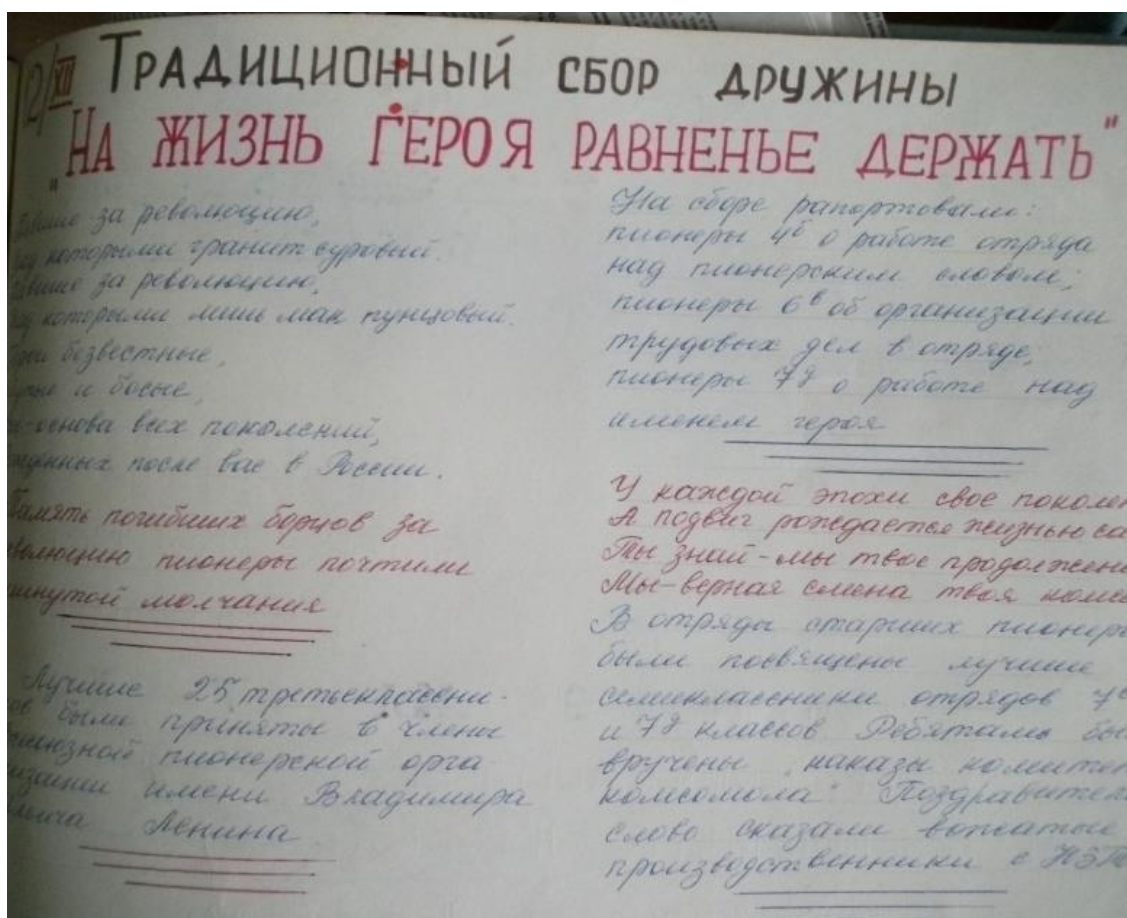 12/XII ТРАДИЦИОННЫЙ СБОР ДРУЖИНЫ
"НА ЖИЗНЬ ГЕРОЯ РАВНЕНЬЕ ДЕРЖАТЬ"
за революцию,
которыми гранит суровый.
за революцию,
которыми лишь мак пунцовый.
безвестные,
и босые,
основа всех поколений,
после вас в России.
Память погибших борцов за
пионеры почтили
молчания
Лучшие 25 третьеклассни-
были приняты в члены
пионерской орга-
имени Владимира
Ленина
На сборе рапортовали:
пионеры 4б о работе отряда
над пионерским словом;
пионеры 6в об организации
трудовых дел в отряде;
пионеры 7д о работе над
именем героя
У каждой эпохи свое
А подвиг рождается жизнью
Ты знай-мы твое
Мы-верная смена твоя
В отряды старших
были посвящены лучшие
семиклассники отрядов
и 7д классов Ребятам
вручены наказы
комсомола Поздравител
слово сказали вожатые
производственники с НЭ